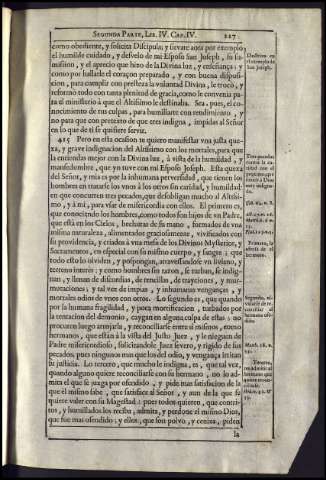 SEGUNDA PARTE, LIB. IV. CAP. IV. 227
como obediente, y solicita Discipula; y llevate aora por exemplo
el humilde cuidado, y desvelo de mi Esposo San Joseph, su su-
mission, y el aprecio que hizo de la Divina luz, y enseñança; y
como por hallarle el coraçon preparado, y con buena disposi-
cion, para cumplir con presteza la voluntad Divina, le trocò, y
reformò todo con tanta plenitud de gracia, como le convenia pa-
ra el ministerio à que el Altissimo le destinaba. Sea, pues, el co-
nocimiento de tus culpas, para humillarte con rendimiento, y
no para que con pretexto de que eres indigna, impidas al Señor
en lo que de ti se quisiere servir.
415 Pero en esta ocasion te quiero manifestar vna justa que-
xa, y grave indignacion del Altissimo con los mortales, para que
la entiendas mejor con la Divina luz, à vista de la humildad, y
mansedumbre, que yo tuve con mi Esposo Joseph. Esta quexa
del Señor, y mia es por la inhumana perversidad, que tienen los
hombres en tratarse los vnos à los otros sin caridad, y humildad:
en que concurren tres pecados, que desobligan mucho al Altissi-
mo, y à mi, para vsar de misericordia con ellos. El primero es,
que conociendo los hombres, como todos son hijos de vn Padre,
que està en los Cielos, hechuras de su mano, formados de vna
misma naturaleza, alimentados graciosamente, vivificados con
su providencia, y criados à vna mesa de los Divinos Mysterios, y
Sacramentos, en especial con su mismo cuerpo, y sangre; que
todo esto lo olviden, y pospongan, atravessandose vn liviano, y
terreno interès: y como hombres sin razon, se turban, se indig-
nan, y llenan de discordias, de rencillas, de trayciones, y mur-
muraciones; y tal vez de impias, y inhumanas venganças, y
mortales odios de vnos con otros. Lo segundo es, que quando
por la humana fragilidad, y poca mortificacion, turbados por
la tentacion del demonio, caygan en alguna culpa de estas; no
procuren luego arrojarla, y reconciliarse entre si mismos, como
hermanos, que estàn à la vista del Justo Juez, y le nieguen de
Padre misericordioso, solicitandole Juez severo, y rigido de sus
pecados, pues ningunos mas que los del odio, y vengança irritan
su justicia. Lo tercero, que mucho le indigna, es, que tal vez,
quando alguno quiere reconciliarse con su hermano, no lo ad-
mite el que se juzga por ofendido, y pide mas satisfacion de la
que el mismo sabe, que satisface al Señor, y aun de la que se
quiere valer con su Magestad: pues todos quieren, que contri-
tos, y humillados los reciba, admita, y perdone el mismo Dios,
que fue mas ofendido; y ellos, que son polvo, y ceniza, piden
la
San Joseph.